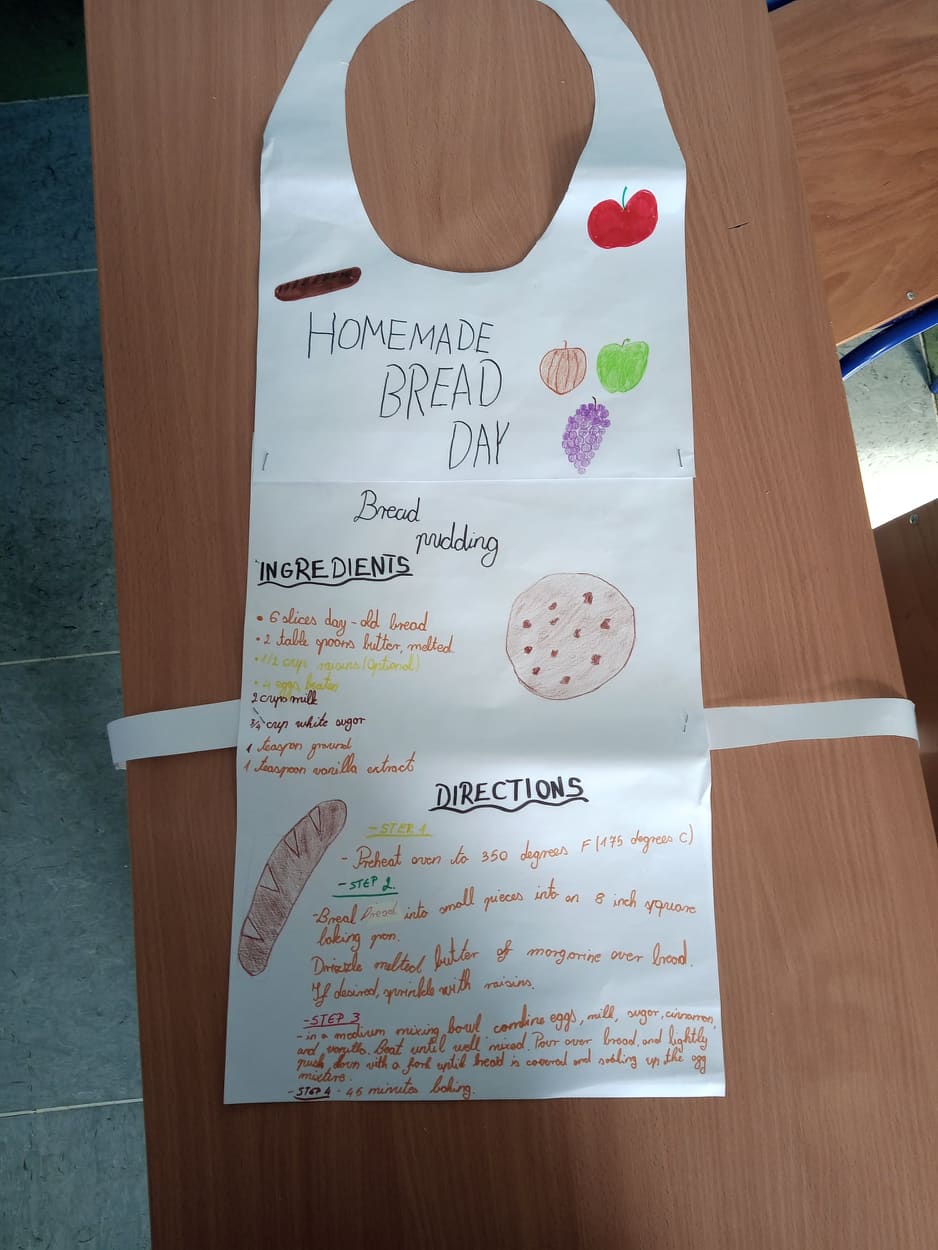 HOMEMADE
BREAD
DAY
Bread
pudding
INGREDIENTS
• 6 slices day-old bread
• 2 table spoons butter, melted
• 1/2 cup raisins (Optional)
• 4 eggs beaten
2 cups milk
3/4 cup white sugar
1 teaspon ground
1 teaspoon vanilla extract
DIRECTIONS
- STEP 1
- Preheat oven to 350 degrees F (175 degrees C)
- STEP 2.
- Breal bread into small pieces into an 8 inch square
baking pan.
Drizzle melted butter of margarine over bread.
If desired, sprinkle with raisins.
- STEP 3
- in a medium mixing bowl combine eggs, mill, sugar, cinnamon,
and vanilla. Beat until well mixed. Pour over bread, and lightly
push down with a fork until bread is covered and soaking up the egg
mixture.
- STEP 4 - 45 minutes baking.